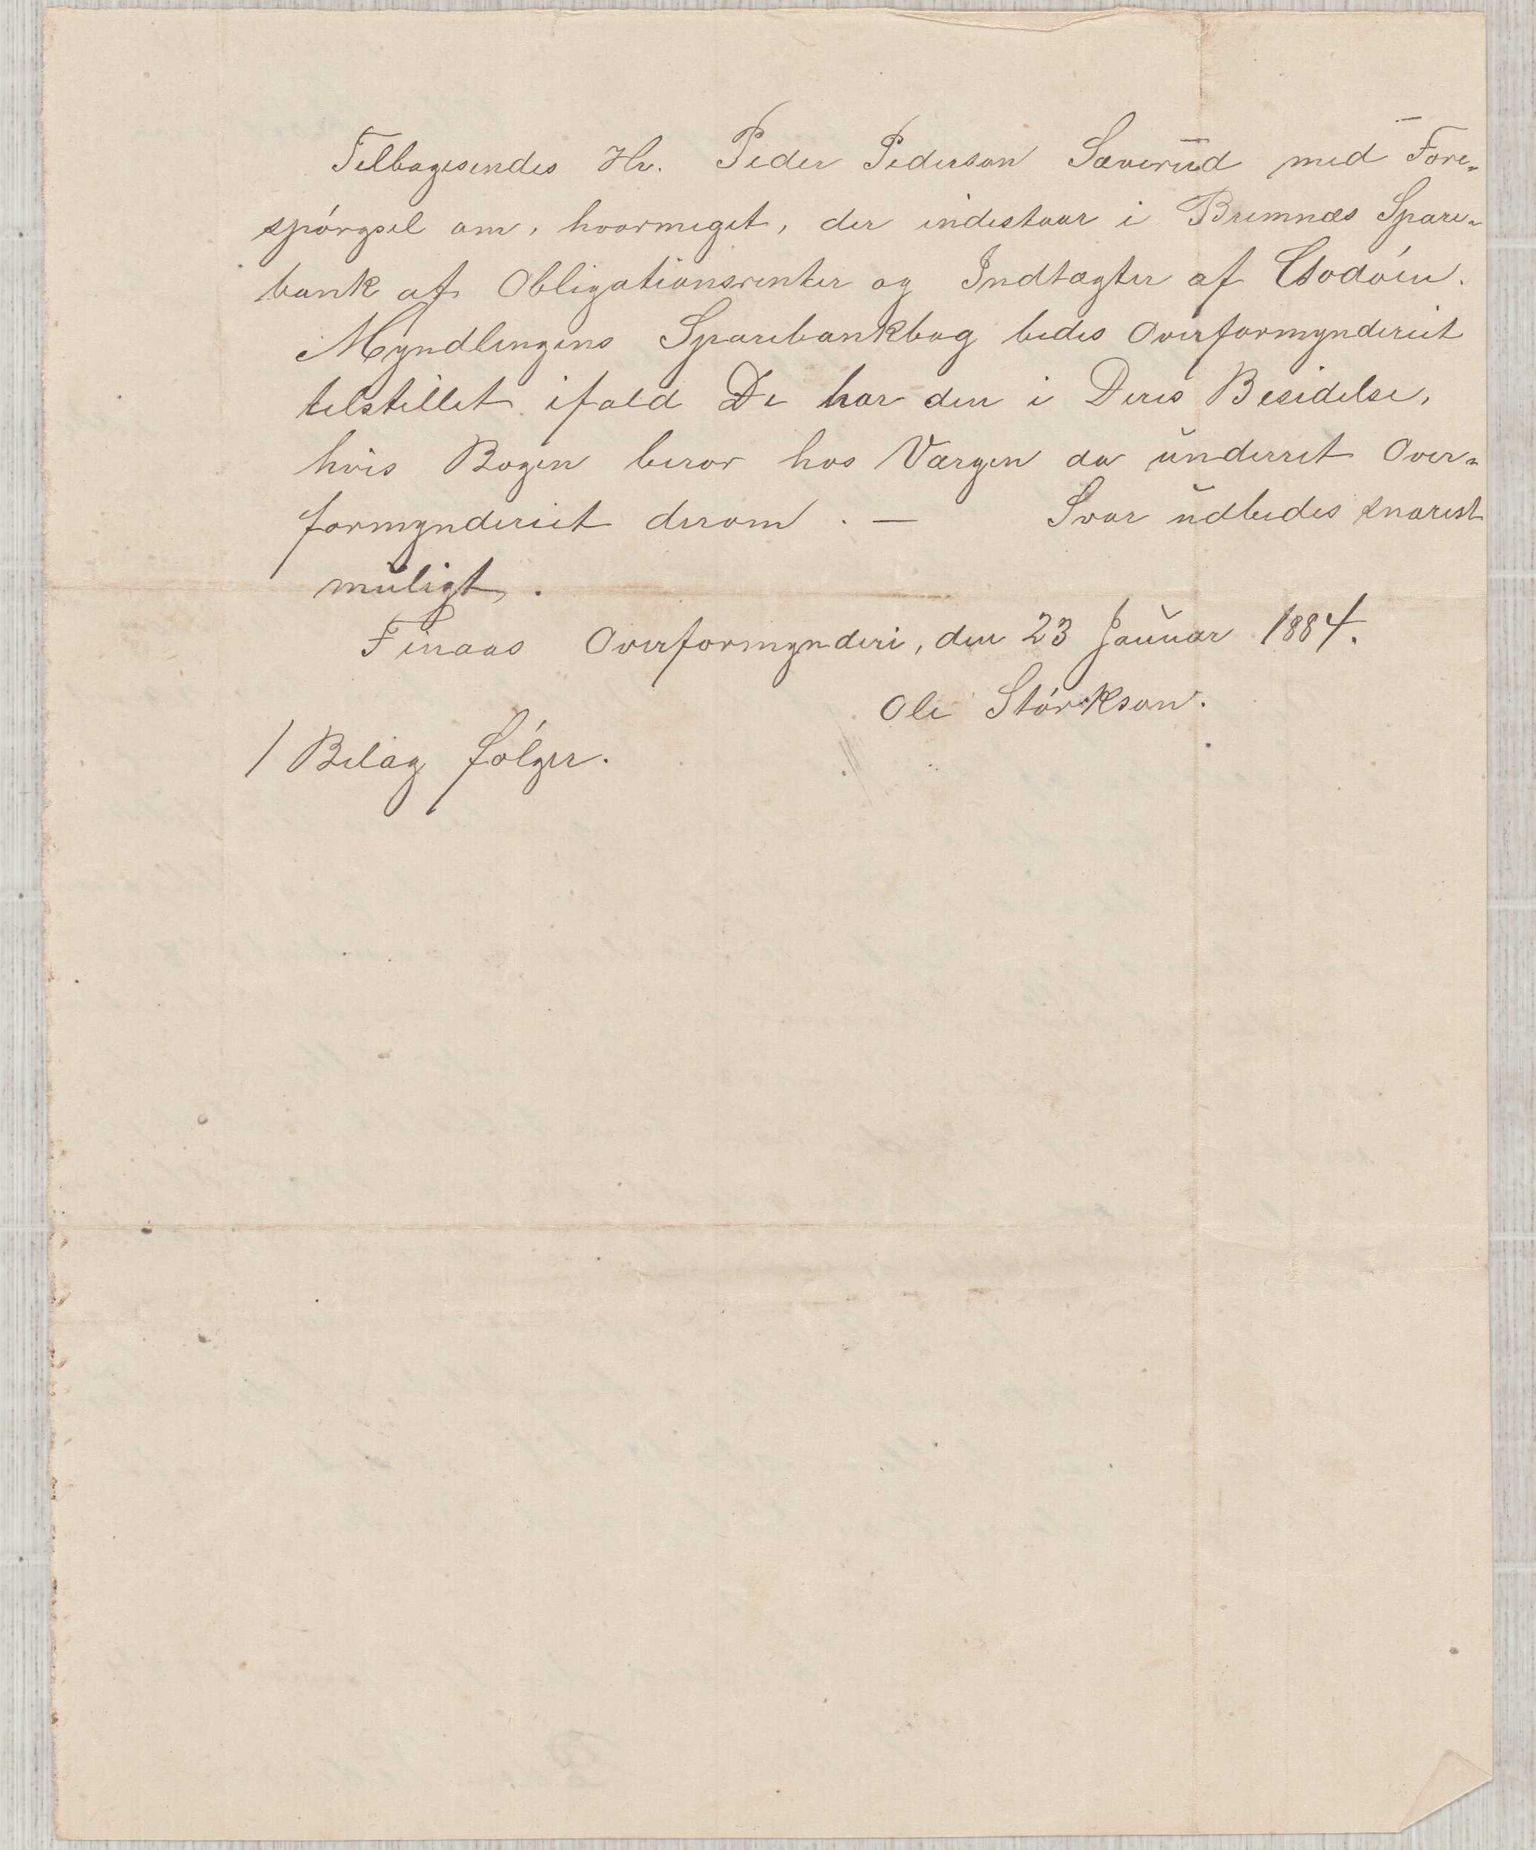 Tilbagesendes Hr. Peder Pederson Sæverud med Fore-
spórgsel om, hvormeget, der indestaar i Bremnæs Spare-
bank af Obligationsrenter og Indtægter af
Myndlingens Sparebankbog bedes Overformynderiet
tilstillet ifald De har den i Deres Besidelse,
hvis Bogen beror hos Værgen da underret Over-
formynderiet derom. — Svar udbedes snarest
muligt.
Finaas Overformynderi, den 23 Januar 1884.
Ole Störkson.
1 Bilag fólger.